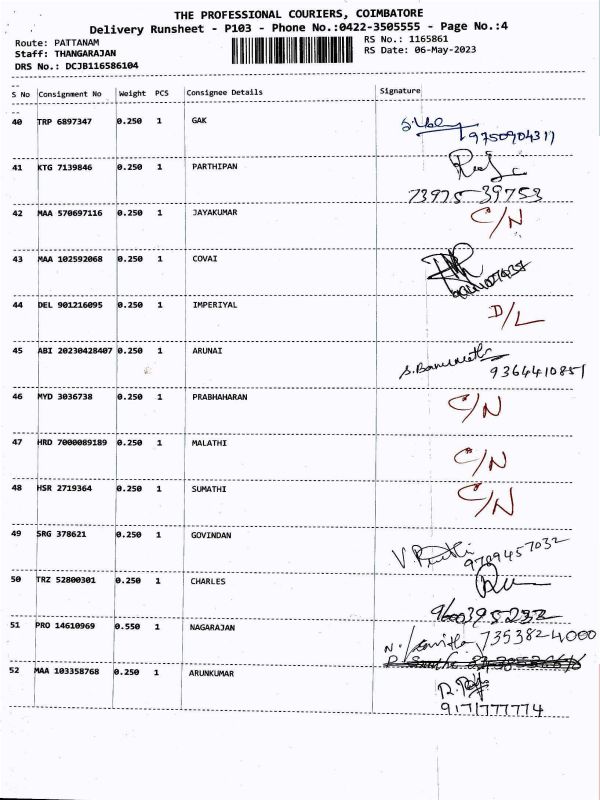 THE PROFESSIONAL COURIERS, COIMBATORE
Delivery Runsheet - P103 - Phone No.:0422-3505555 - Page No.:4
Route: PATTANAM
RS No.: 1165861
Staff: THANGARAJAN
RS Date: 06-May-2023
DRS No.: DCJB116586104
S No Consignment No Weight PCS Consignee Details Signature
40 TRP 6897347 0.250 1 GAK
9750904311
41 KTG 7139846 0.250 1 PARTHIPAN
73975 39753
42 MAA 570697116 0.250 1 JAYAKUMAR C/N
43 MAA 102592068 0.250 1 COVAI
44 DEL 901216095 0.250 1 IMPERIYAL D/L
45 ABI 20230428407 0.250 1 ARUNAI
9364410851
46 MYD 3036738 0.250 1 PRABHAHARAN C/N
47 HRD 7000089189 0.250 1 MALATHI C/N
48 HSR 2719364 0.250 1 SUMATHI C/N
49 SRG 378621 0.250 1 GOVINDAN
9789457032
50 TRZ 52800301 0.250 1 CHARLES
9600395232
51 PRO 14610969 0.550 1 NAGARAJAN
7353824000
52 MAA 103358768 0.250 1 ARUNKUMAR
9171777774